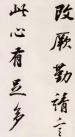 改厥勤請言
此心有足多